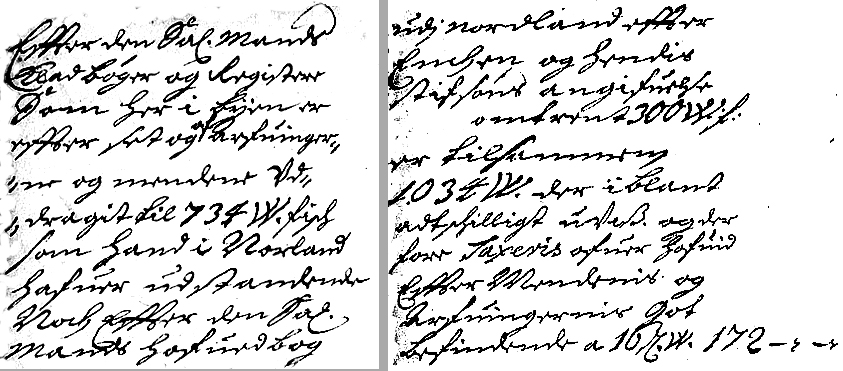 Effter den Sal. Mands
Kladbøger og Registere
Som her i Byen er
effter set og af Arfuinger,,
,,ne og mendene Vd,,
,,dragit til 734 W. fisch
som hand i Norland
hafuer udstandende
Noch Effter den Sal.
Mands hofuedbog
udj nordland effter
Enchen og hendis
stifsøns angifuelse
omtrent 300 W. f:
er tilsammen
1034 W. der iblant
adtschilligt uvist. og der
fore Taxeris ofuer Hofuid
Effter Mendenis og
Arfuingernis Got
befindende a 16 W. 172 - -